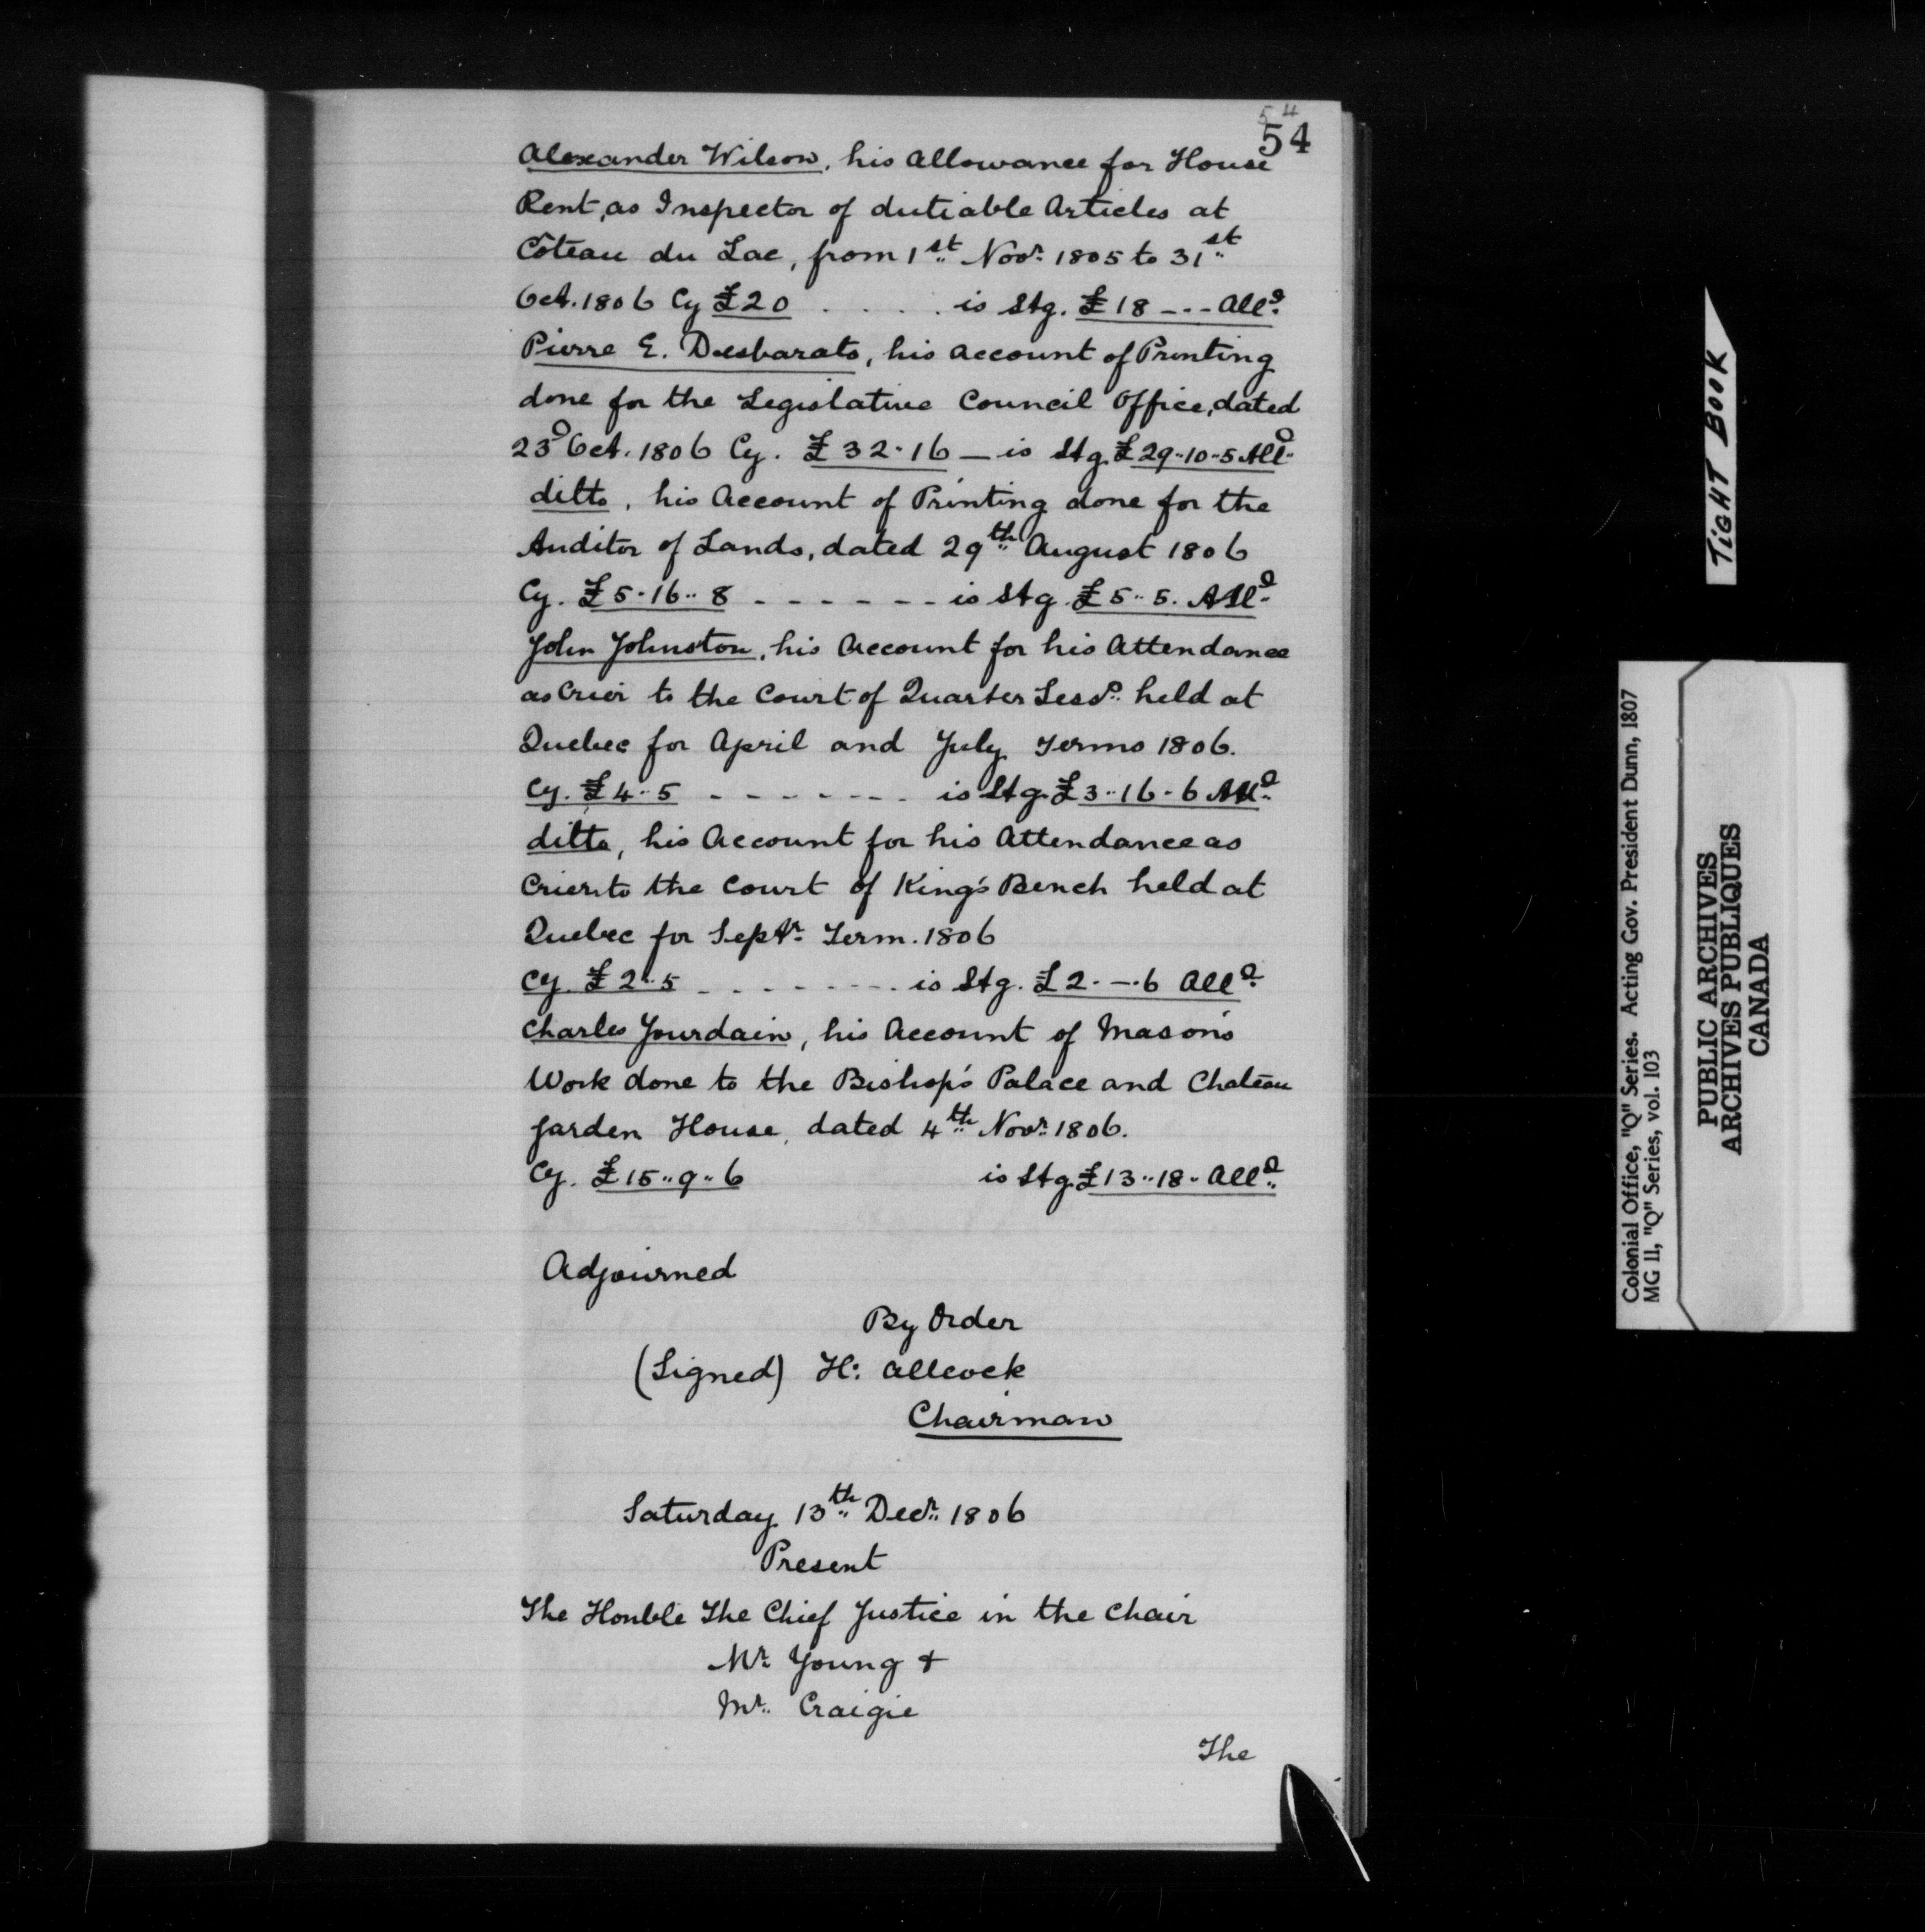 54
54
Alexander Wilson, his Allowance for House
Rent, as Inspector of dutiable Articles at
Côteau du Lac, from 1st Novr. 1805 to 31st
Oct. 1806 Cy £20 . . . . is Stg. £18 --- Alld.
Pierre E. Desbarats, his Account of Printing
done for the Legislative Council Office, dated
23d Oct. 1806 Cy. £32·16 — is Stg. £29·10·5 Alld.
ditto, his Account of Printing done for the
Auditor of Lands, dated 29th August 1806
Cy. £5·16·8 - - - - - - is Stg. £5·5. Alld.
John Johnston, his Account for his Attendance
as Crier to the Court of Quarter Sessns. held at
Quebec for April and July Terms 1806.
Cy. £4·5 - - - - - - - is Stg. £3·16·6 Alld.
ditto, his Account for his Attendance as
Crier to the Court of King's Bench held at
Quebec for Septr. Term. 1806
Cy. £2·5 - - - - - - - is Stg. £2·—·6 Alld.
Charles Jourdain, his Account of Mason's
Work done to the Bishop's Palace and Chateau
Garden House, dated 4th Novr. 1806.
Cy. £15·9·6 is Stg. £13·18· Alld.
Adjourned
By Order
(Signed) H: Allcock
Chairman
Saturday 13th Decr. 1806
Present
The Honble The Chief Justice in the Chair
Mr. Young &
Mr. Craigie
The
TIGHT BOOK
Colonial Office, "Q" Series. Acting Gov. President Dunn, 1807
MG 11, "Q" Series, vol. 103
PUBLIC ARCHIVES
ARCHIVES PUBLIQUES
CANADA